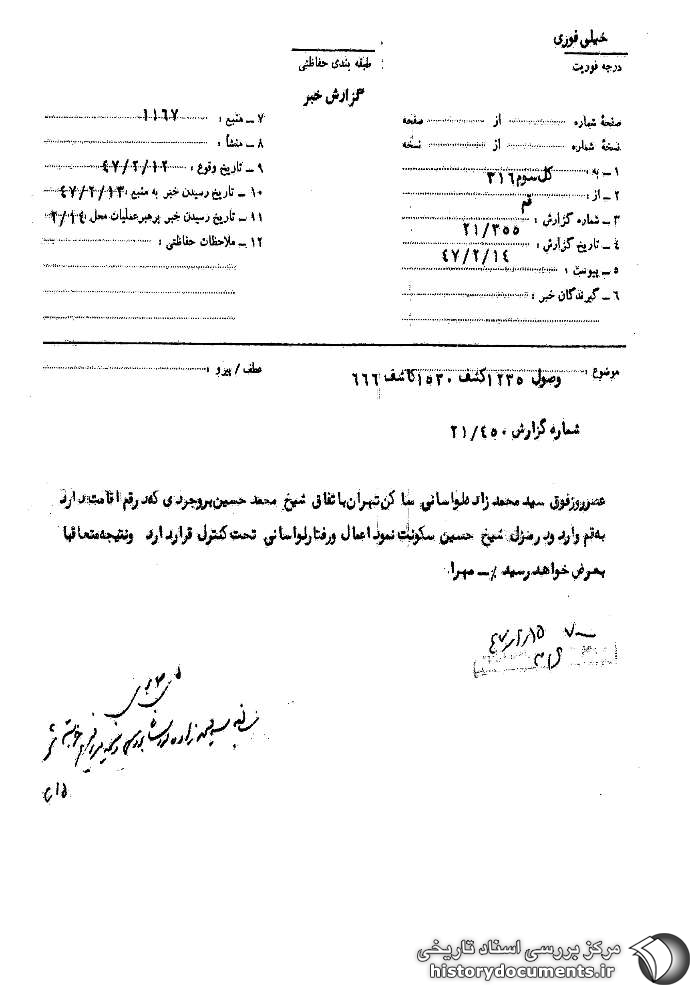 خیلی فوری
درجه فوریت
طبقه بندی حفاظتی
گزارش خبر
صفحهٔ شماره از صفحه
نسخهٔ شماره از نسخه
۱ ـ به : کل سوم ۳۱۶
۲ ـ از : قم
۳ ـ شماره گزارش : ۲۱/۳۵۵
۴ ـ تاریخ گزارش : ۴۷/۲/۱۴
۵ ـ پیوست :
۶ ـ گیرندگان خبر :
۷ ـ منبع : ۱۱۶۷
۸ ـ منشأ :
۹ ـ تاریخ وقوع : ۴۷/۲/۱۲
۱۰ ـ تاریخ رسیدن خبر به منبع : ۴۷/۲/۱۳
۱۱ ـ تاریخ رسیدن خبر برهبر عملیات محل : ۲/۱۴
۱۲ ـ ملاحظات حفاظتی :
موضوع : وصول ۱۲۳۵ کشف ۱۵۳۰ کاشف ۶۶۶
عطف / پیرو :
شماره گزارش ۲۱/۴۵۰
عصر روز فوق سید محمد زاد لواسانی ساکن تهران باتفاق شیخ محمد حسین بروجردی که در قم اقامت دارد
به قم وارد و در منزل شیخ حسین سکونت نمود اعمال و رفتار لواسانی تحت کنترل قرار دارد و نتیجه متعاقبا
بعرض خواهد رسید ٪ ـ مهرا
۴۷/۲/۱۵
مرکز بررسی اسناد تاریخی
historydocuments.ir